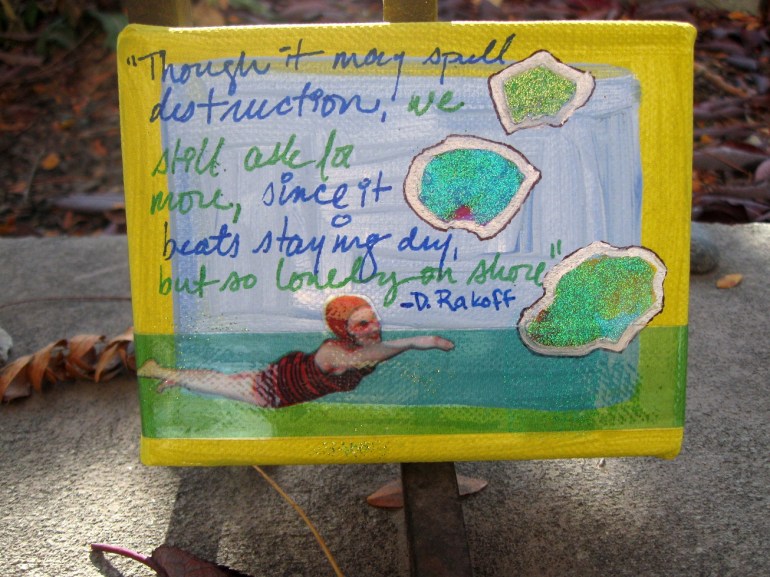 "Though it may spell
destruction, we
still ask for
more, since it
beats staying dry,
but so lonely on shore"
-D. Rakoff